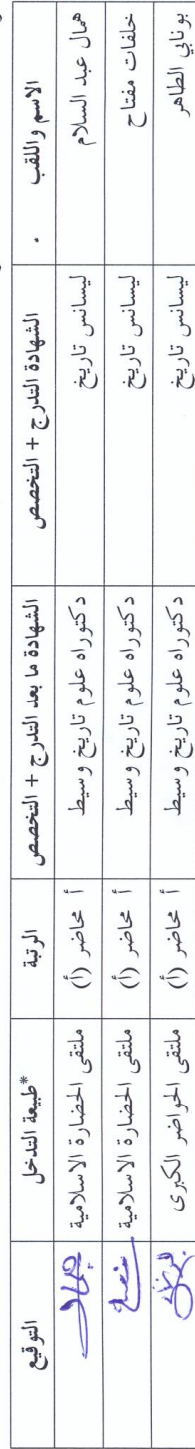 الاسم واللقب الشهادة التدرج + التخصص الشهادة ما بعد التدرج + التخصص الرتبة *طبيعة التدخل التوقيع
همال عبد السلام ليسانس تاريخ دكتوراه علوم تاريخ وسيط أ محاضر (أ) ملتقى الحضارة الاسلامية
خلفات مفتاح ليسانس تاريخ دكتوراه علوم تاريخ وسيط أ محاضر (أ) ملتقى الحضارة الاسلامية
بونابي الطاهر ليسانس تاريخ دكتوراه علوم تاريخ وسيط أ محاضر (أ) ملتقى الحواضر الكبرى